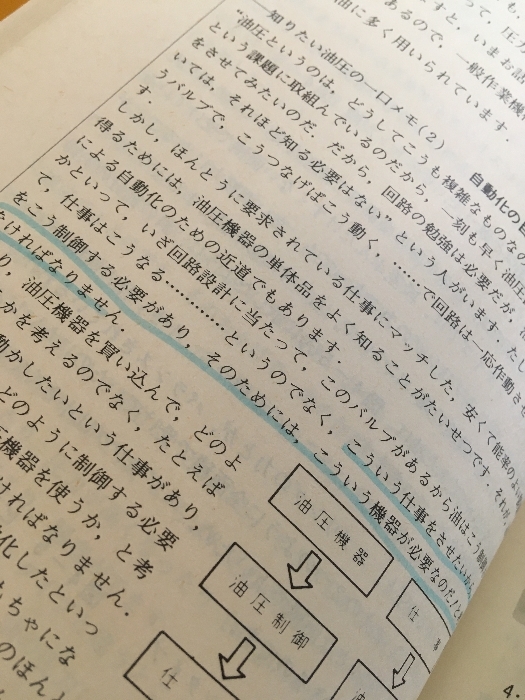 って，圧力
あるので，一般作業機
すと，いまお
油に多く用いられています．
自動化の
知りたい油圧の一口メモ（2）
“油圧というのは，どうしてこうも複雑なものなの
という課題に取組んでいるのだから，一刻も早く油圧
をさせてみたいのだ．だから，回路の勉強は必要だが，
いては，それほど知る必要はない”という人がいます．たし
うバルブで，こうつなげばこう動く，……で回路は一応作動さ
す．
しかし，ほんとうに要求されている仕事にマッチした，安くて能率の
得るためには，油圧機器の単体品をよく知ることがたいせつです．それが
による自動化のための近道でもあります．
かといって，いざ回路設計に当たって，このバルブがあるから油はこう
て，仕事はこうなる…………というのでなく，こういう仕事をさせたいから
をこう制御する必要があり，そのためには，こういう機器が必要なのだと
なければなりません．
り，油圧機器を買い込んで，どのよ
かを考えるのでなく，たとえば
動かしたいという仕事があり，
どのように制御する必要
圧機器を使うか，と考
ければなりません．
化したといっ
ちゃにな
のほんと
油圧機器
油圧制御
仕
仕
4・